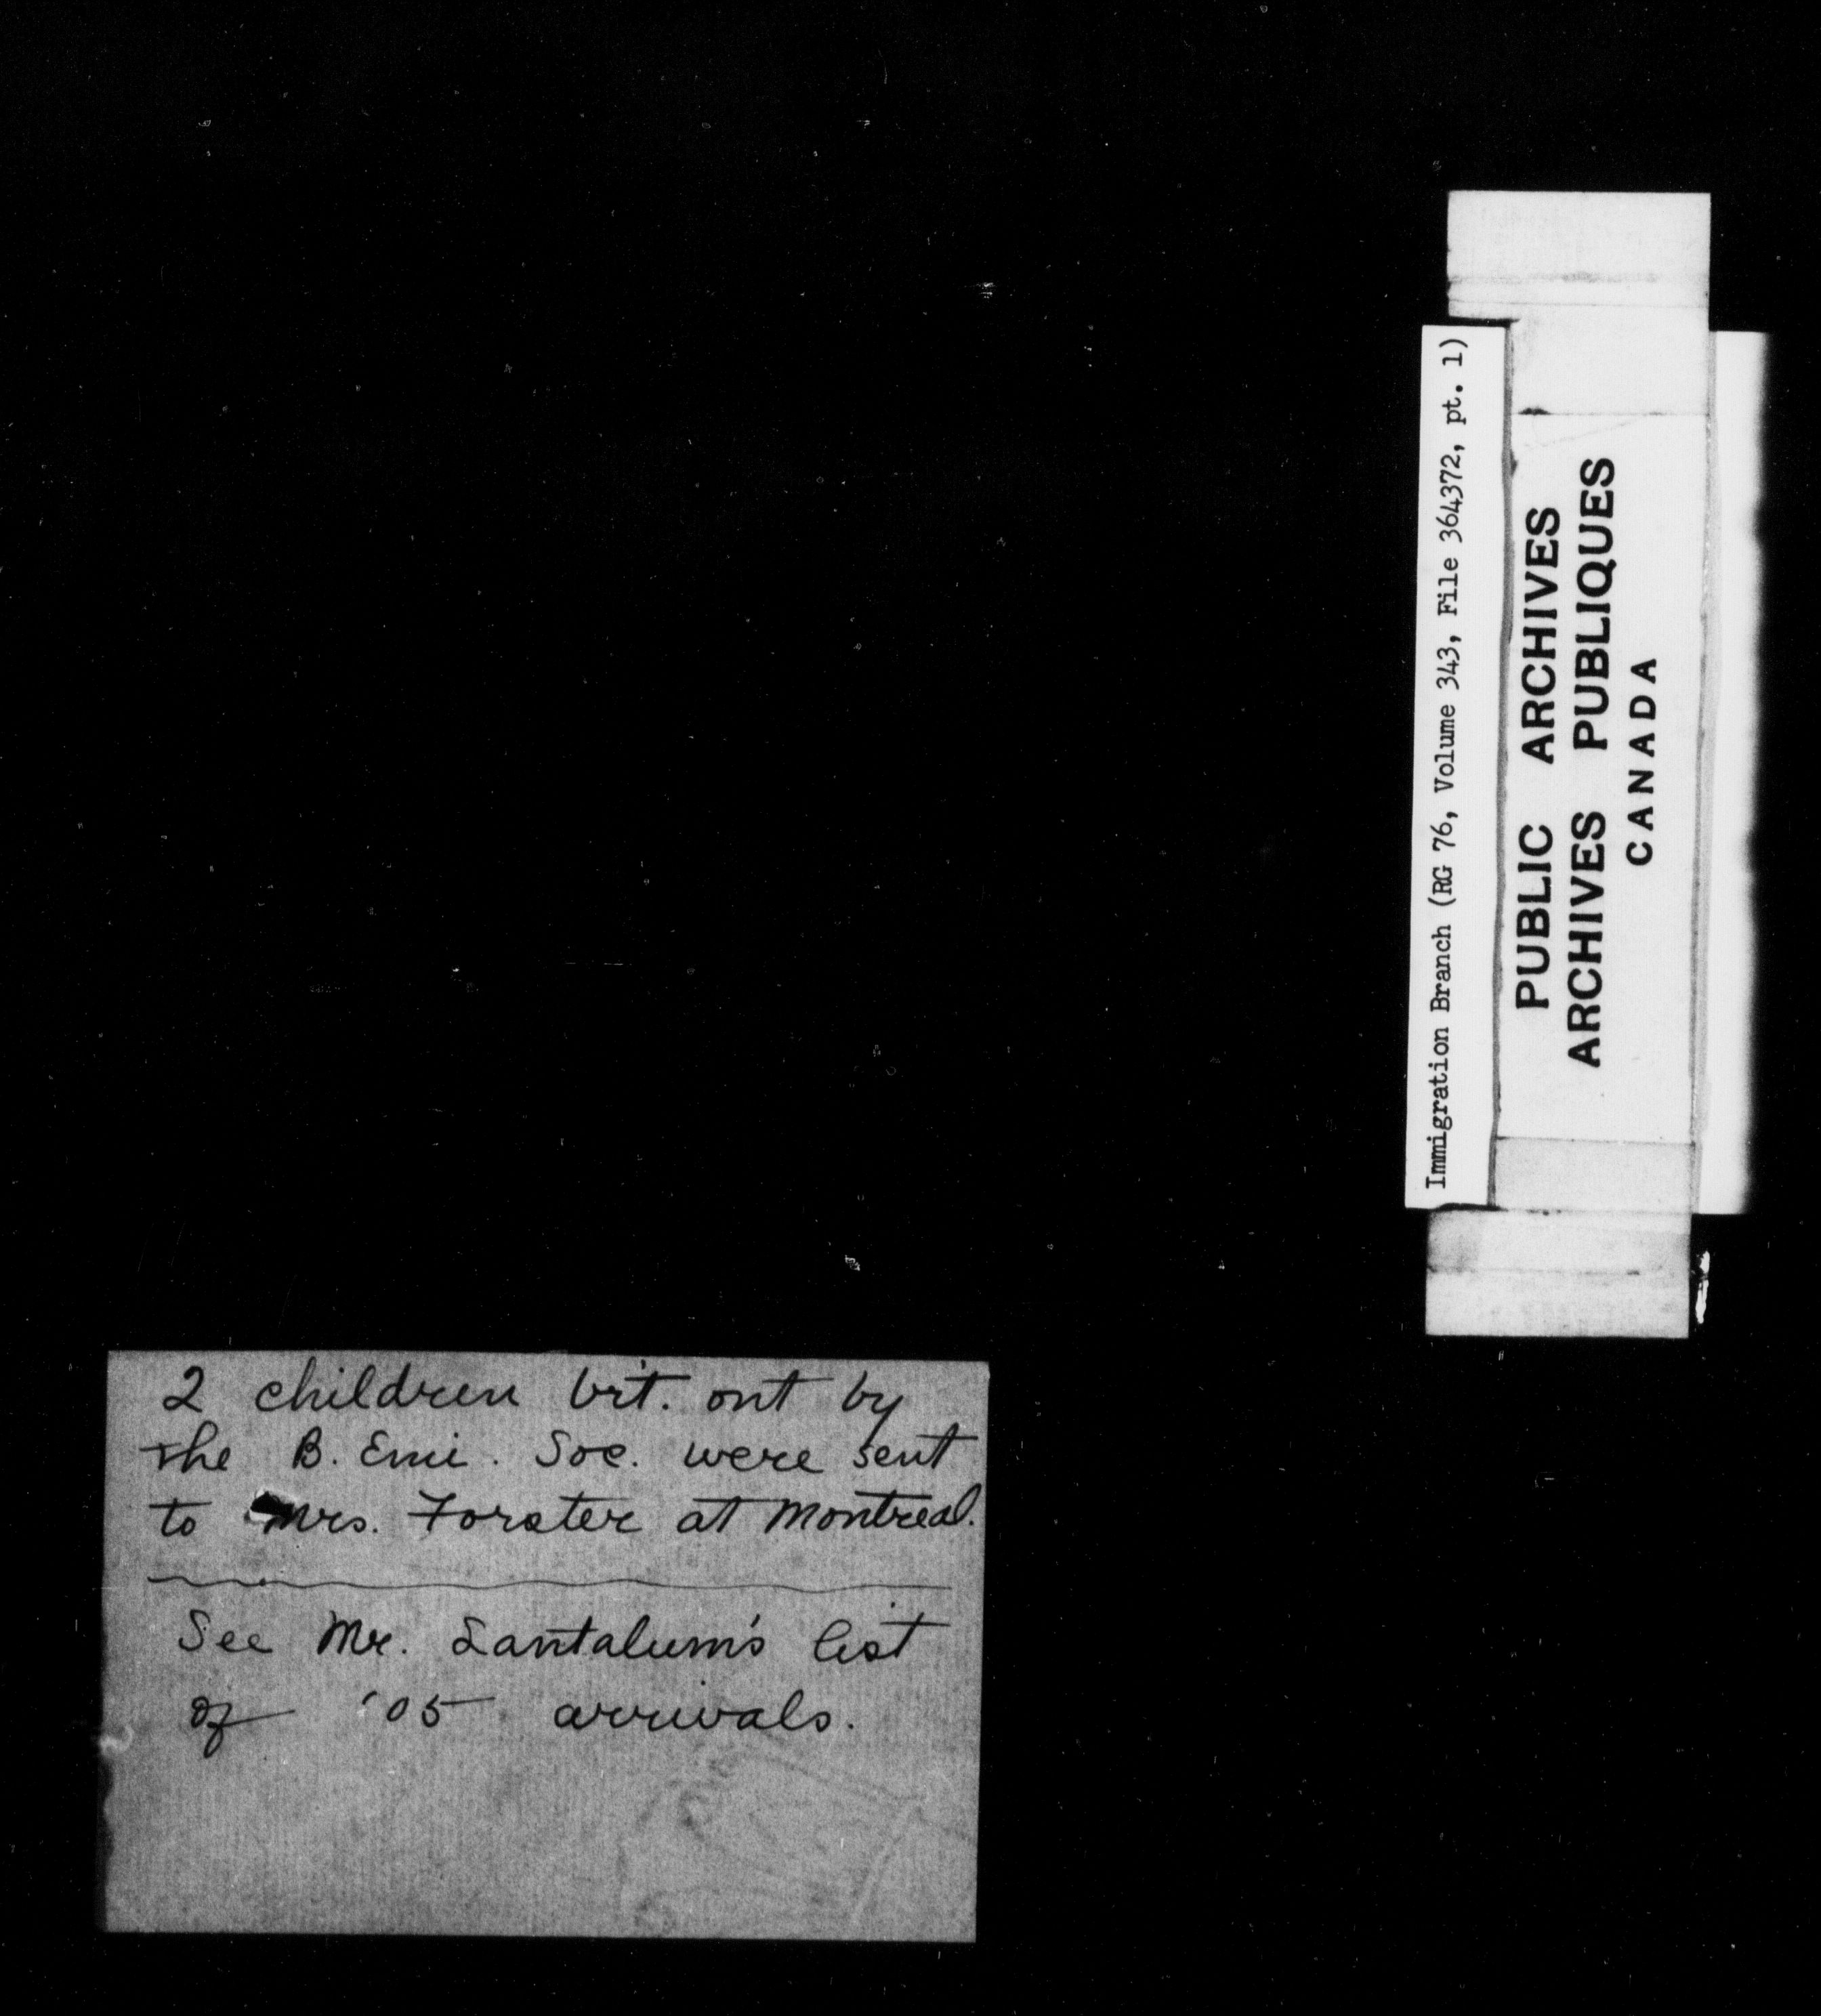 Immigration Branch (RG 76, Volume 343, File 364372, pt. 1)
PUBLIC ARCHIVES
ARCHIVES PUBLIQUES
CANADA
2 children brt. out by
the B. Emi. Soc. were sent
to Mrs. Forster at Montreal.
See Mr. Lantalum's list
of '05 arrivals.